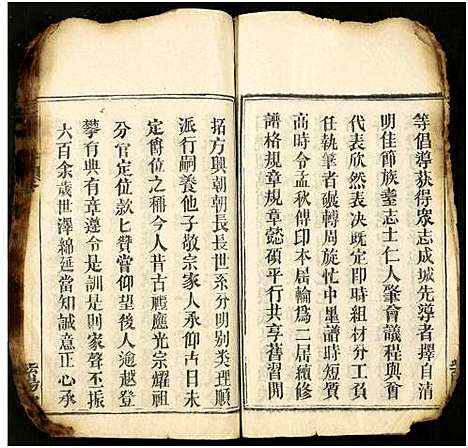 等倡導获得眾志成城先導者擇自清
明佳節族臺志士仁人肇會議程與會
代表欣然表决既定即時組材分工負
任執筆者輾轉周旋忙中畢譜時短質
高時令孟秋傅印本届輪為二届續修
譜格規章規章懿碩平行共享舊習開
拓方興朝朝長長世系分明别类理順
派行嗣養他子敬宗家人承仰古日未
定舊位之稱今人昔古禮應光宗耀祖
分官定位款匕贊當仰望後人逾越登
攀有典有章遵令是訓是則家聲不振
六百余歲世澤綿延當知誠意正心承